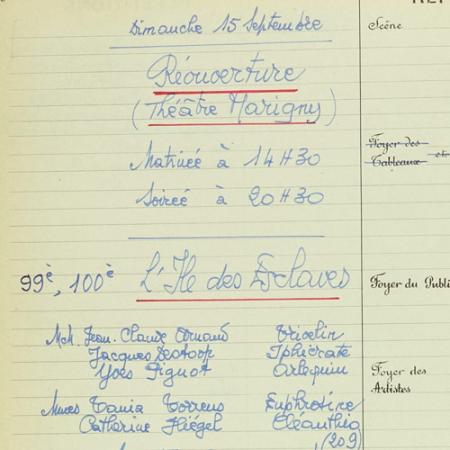 Dimanche 15 Septembre
Scène
Réouverture
(Théâtre Marigny)
Foyer des
Tableaux
Matinée à 14H30
Soirée à 20H30
99è, 100è L'Ile des Esclaves
Foyer du Publi
MM. Jean-Claude Arnaud Trivelin
Jacques Destoop Iphicrate
Yves Pignot Arlequin
Foyer des
Artistes
Mmes Tania Torrens Euphrosine
Catherine Hiégel Cléanthis
(209)